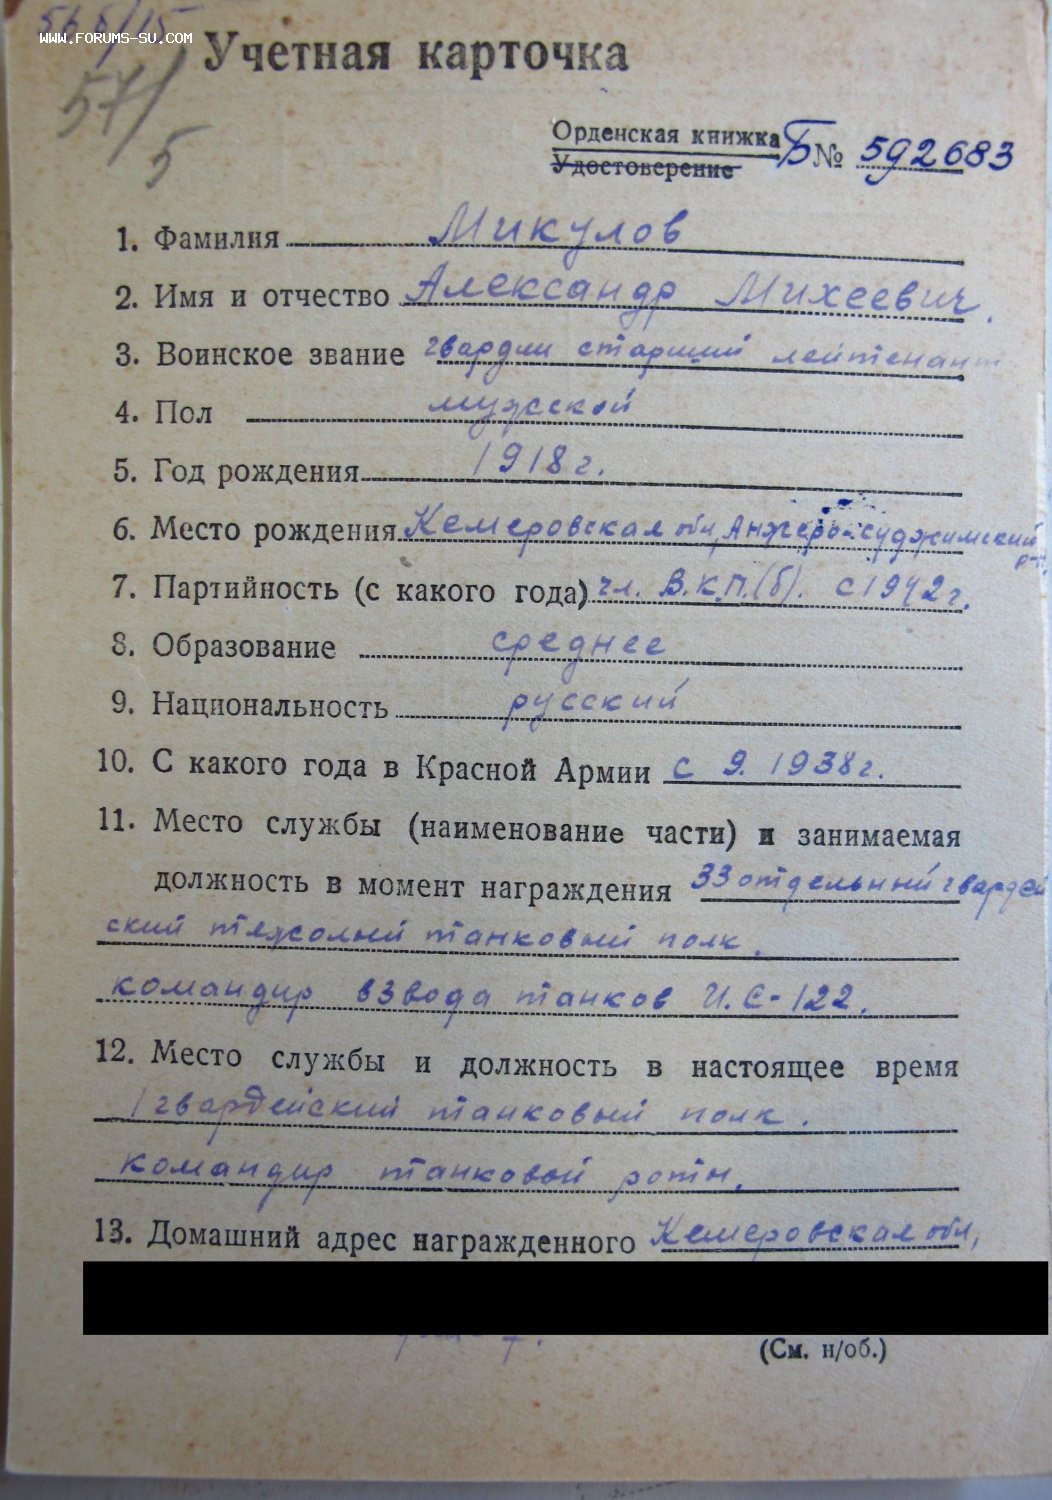 565/15
WWW.FORUMS-SU.COM
57/5
Учетная карточка
Орденская книжка Б № 592683
Удостоверение
1. Фамилия Микулов
2. Имя и отчество Александр Михеевич.
3. Воинское звание гвардии старший лейтенант
4. Пол мужской
5. Год рождения 1918 г.
6. Место рождения Кемеровская обл, Анжеро-Суджимский
р-н,
7. Партийность (с какого года) чл. В.К.П.(б). с 1942 г.
8. Образование среднее
9. Национальность русский
10. С какого года в Красной Армии с 9. 1938 г.
11. Место службы (наименование части) и занимаемая
должность в момент награждения 33 отдельный гвардей
ский тяжолый танковый полк,
командир взвода танков И.С-122,
12. Место службы и должность в настоящее время
1 гвардейский танковый полк.
командир танковой роты,
13. Домашний адрес награжденного Кемеровская обл,
(См. н/об.)